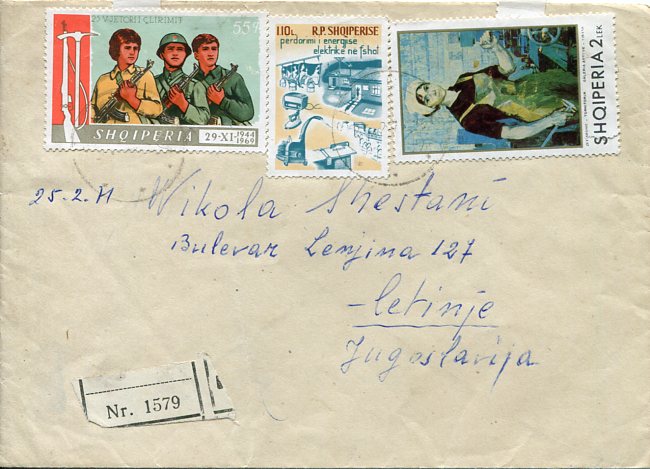 25 VJETORI I ÇLIRIMIT 55q
SHQIPERIA 29·XI·1944
1969
110q R.P. SHQIPERISE
perdorimi i energjise
elektrike në fshat
SHQIPERIA 2 LEK
25.2.71
Nikola Shestani
Bulevar Lenjina 127
-Cetinje
Jugoslavija
Nr. 1579